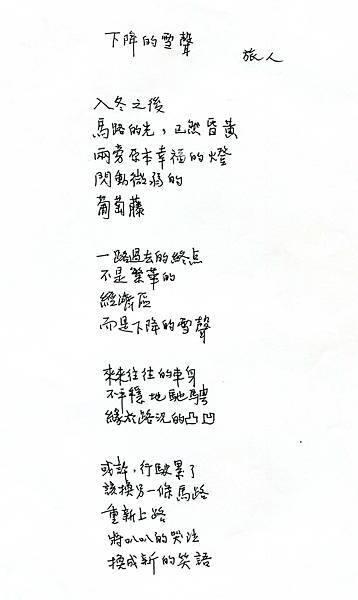 下降的雪聲
旅人
入冬之後
馬路的光，已然昏黃
兩旁原本幸福的燈
閃動微弱的
葡萄藤
一路過去的終点
不是繁華的
經濟區
而是下降的雪聲
來來往往的車身
不平穩地馳騁
緣於路況的凸凹
或許，行駛累了
該換另一條馬路
重新上路
將叭叭的哭泣
換成新的笑語